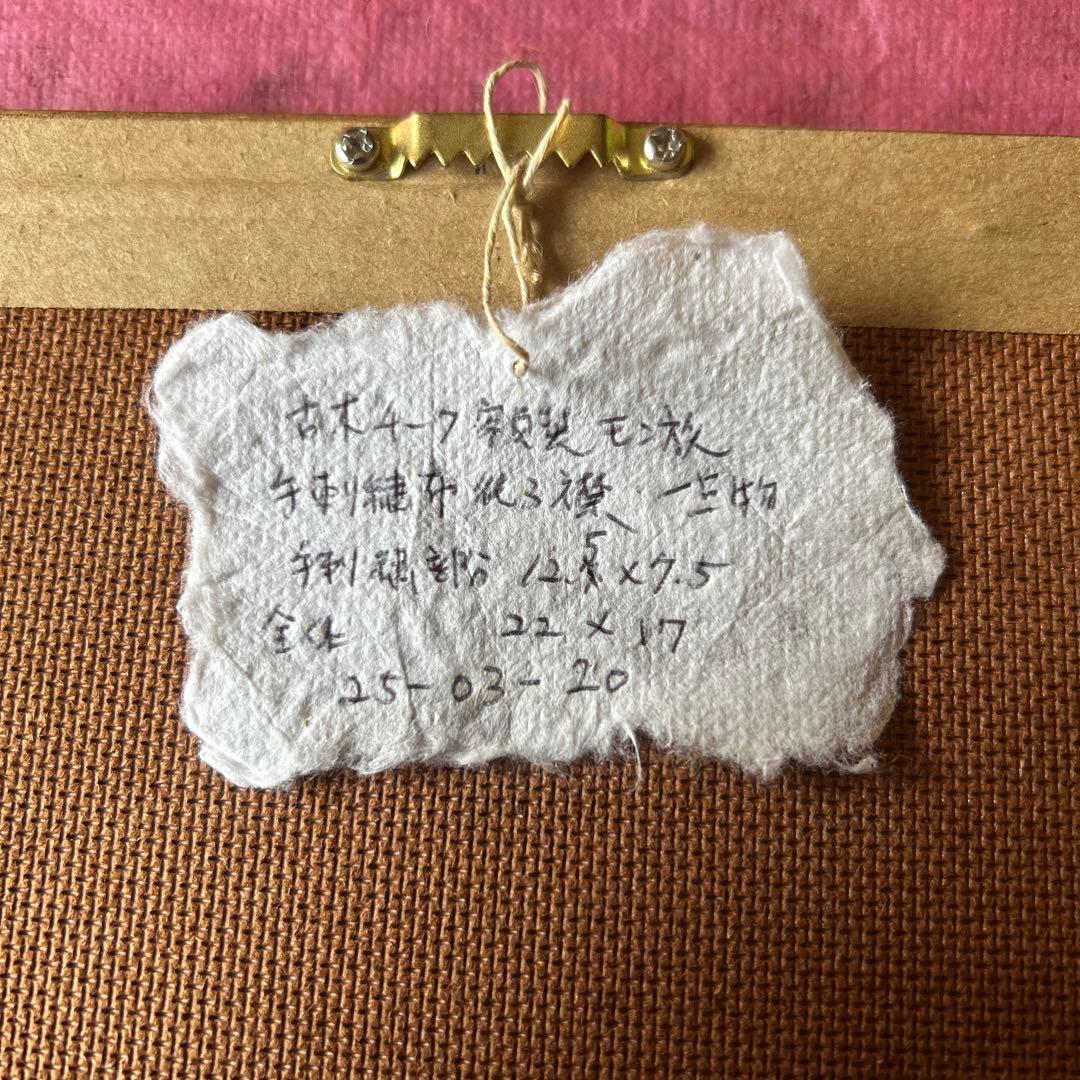 古木4-7 額装 モン族
手刺繍布 化3襟 一点物
手刺繍部分 12.5×7.5
全体 22×17
25-03-20